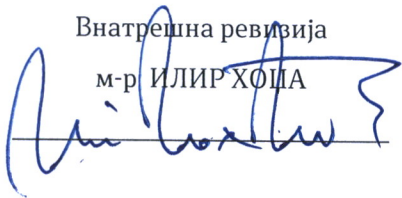 Внатрешна ревизија
м-р ИЛИР ХОЏА